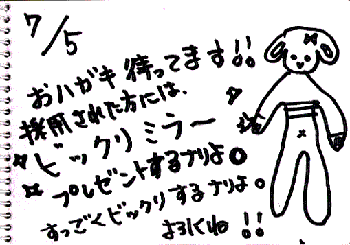 7/5
おハガキ待ってます!!
採用された方には、
ビックリミラー
プレゼントするナリよ。
すっごくビックリするナリよ。
よろしくね!!